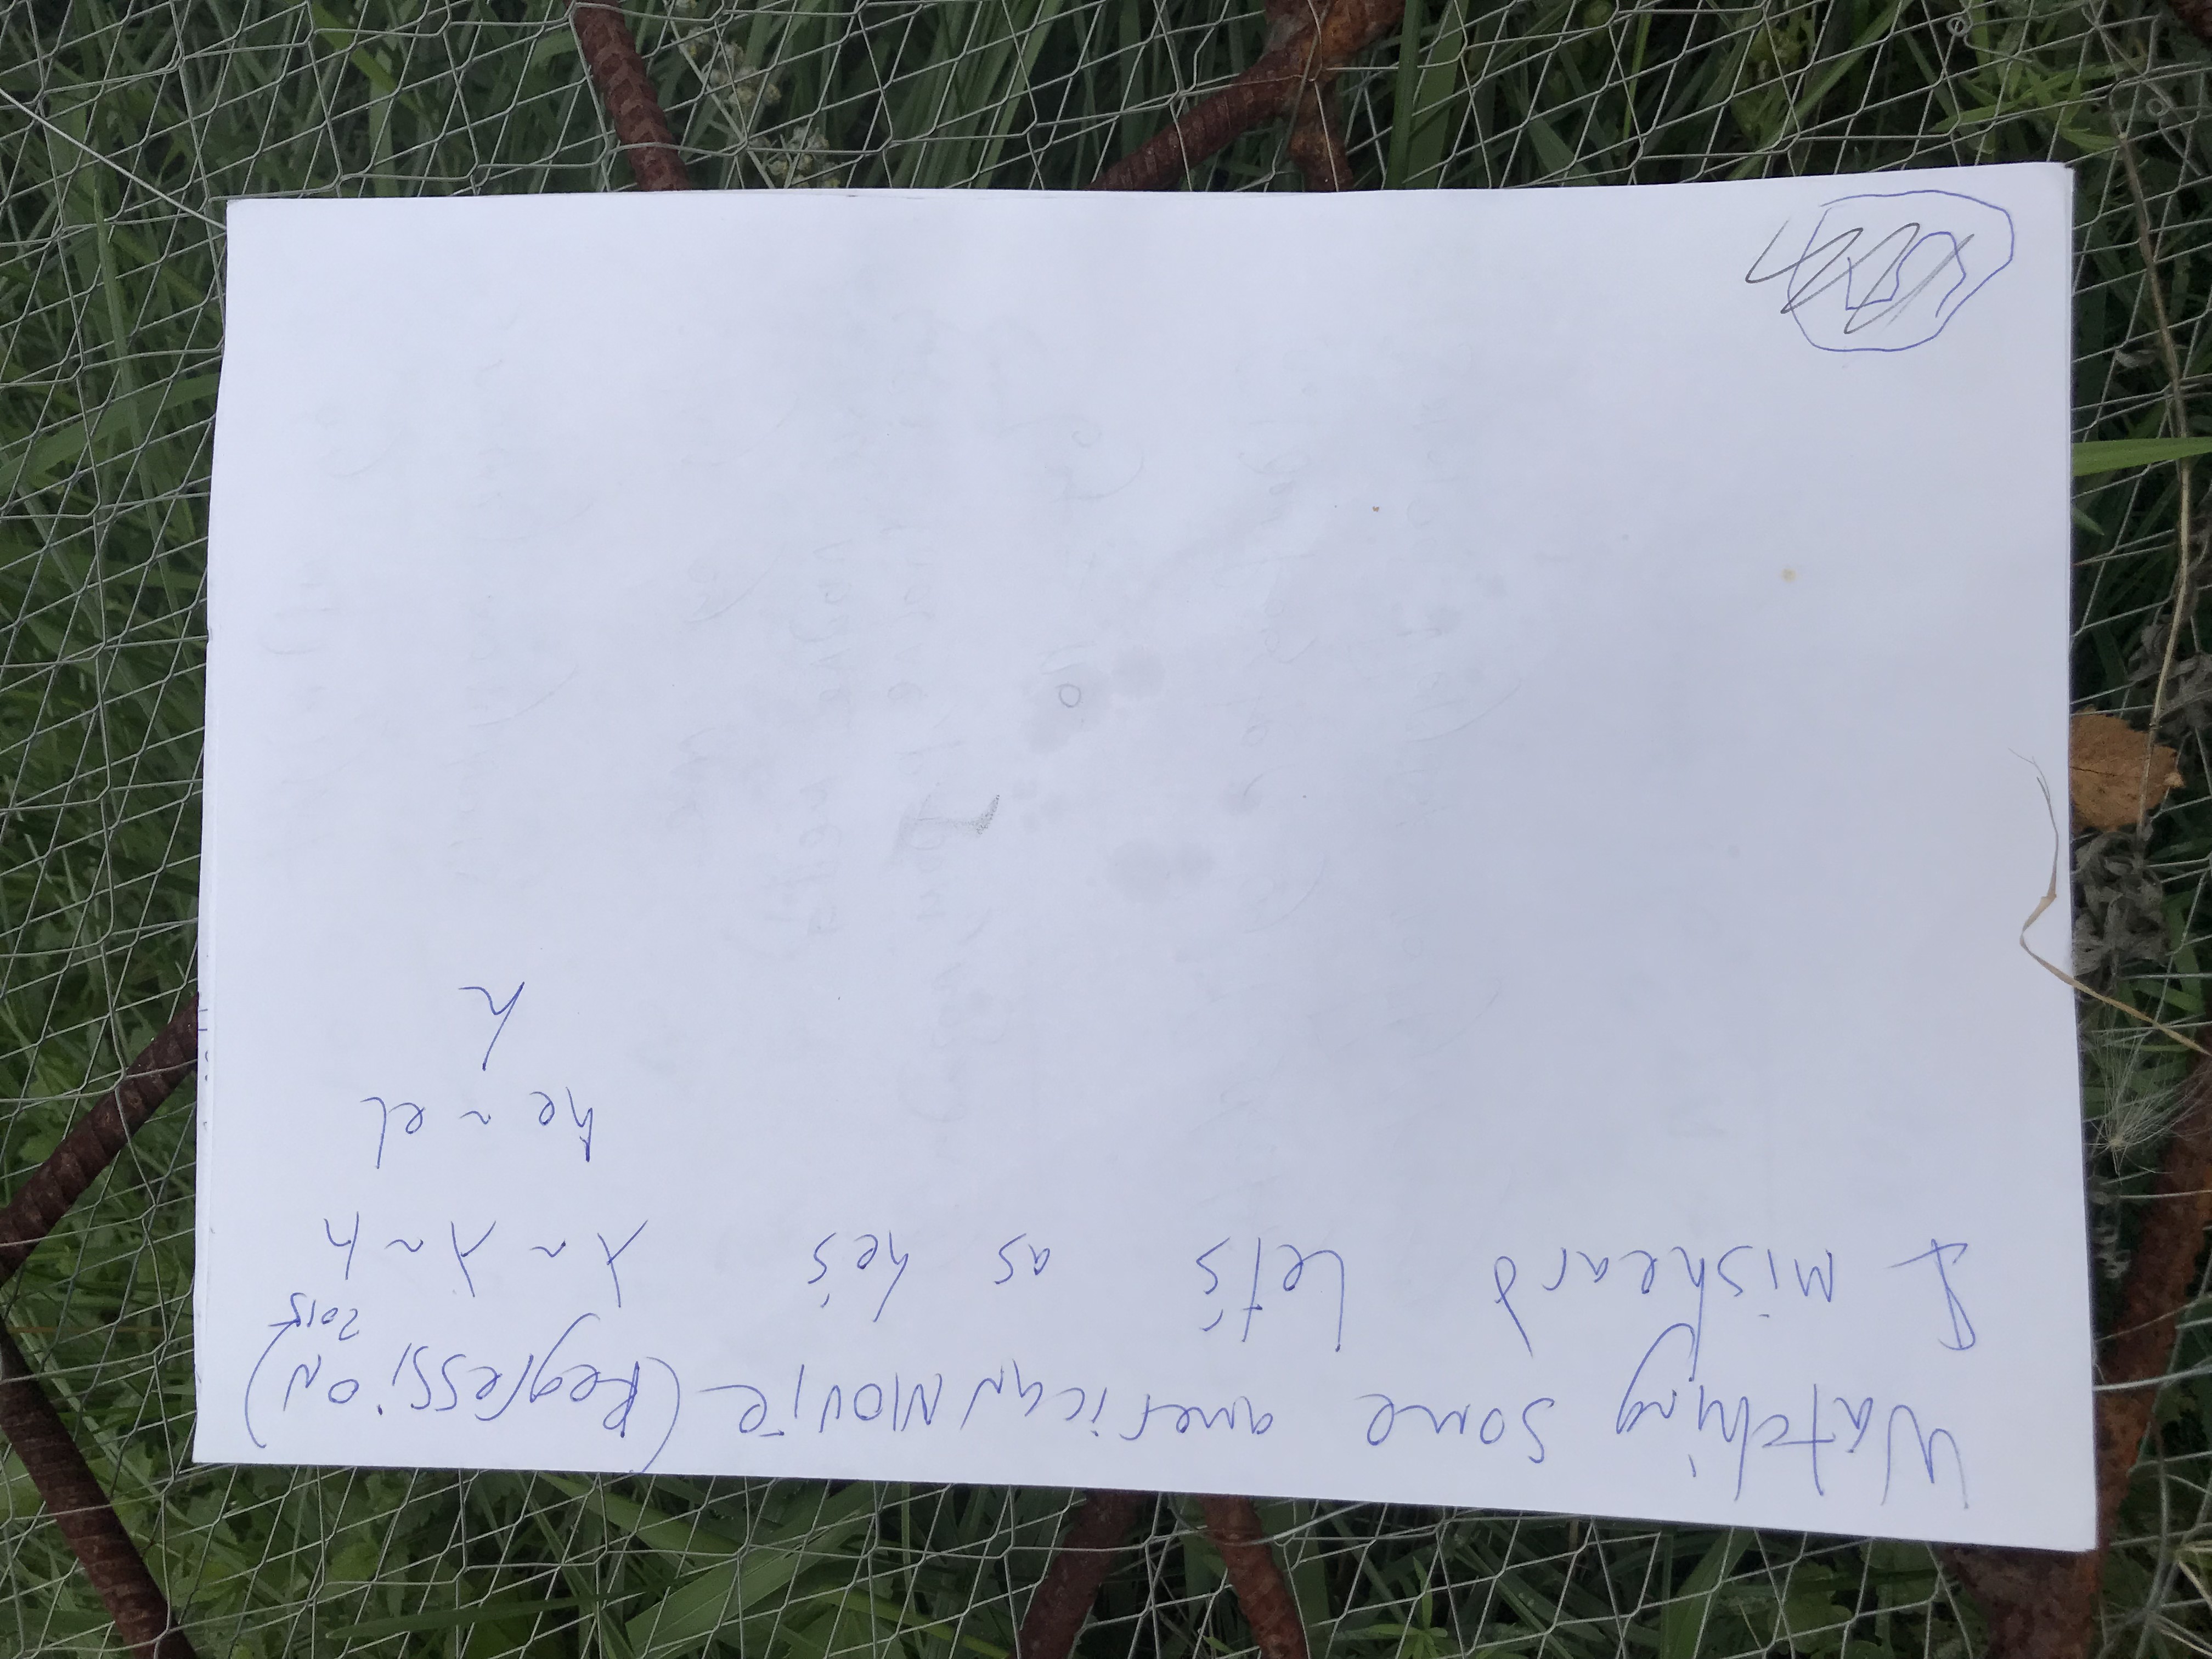 Watching some american Movie (Regression)
2015
I misheard Let's as he's λ ~ λ ~ h
he ~ el
h